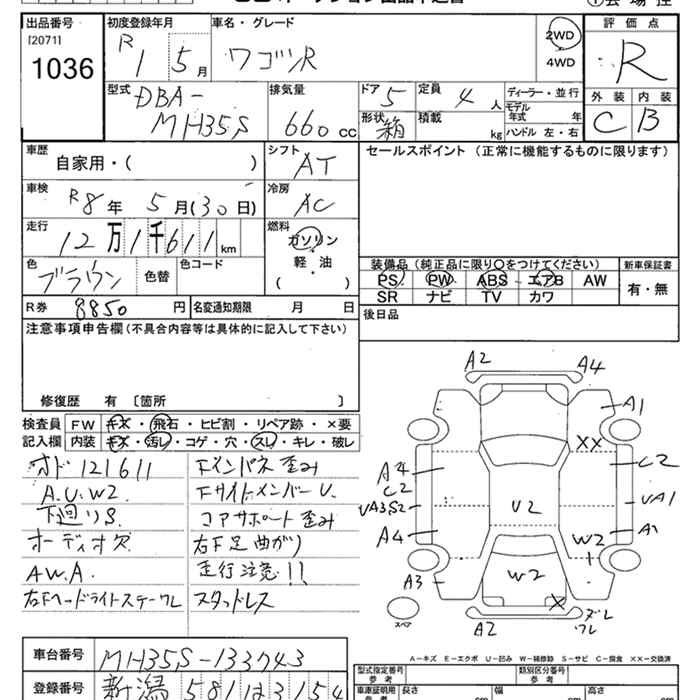 出品番号 初度登録年月 車名・グレード 評価点
[2071]
1036
R 1 5月 ワゴンR 2WD
4WD
R
型式 DBA-
MH35S
排気量 660 cc
ドア 5 定員 4 人
形状 箱 積載 kg
ディーラー・並行
モデル年式 年
ハンドル 左・右
外装 内装
C B
車歴 自家用・( )
シフト AT
セールスポイント (正常に機能するものに限ります)
車検 R8年 5月(30日)
冷房 AC
走行 12万1千611km
燃料 ガソリン
軽・油
( )
色 ブラウン 色替 色コード
装備品(純正品に限り○をつけてください) 新車保証書
PS PW ABS エアB AW 有・無
SR ナビ TV カワ
R券 8850 円 名変通知期限 月 日
後日品
注意事項申告欄(不具合内容等は具体的に記入して下さい)
修復歴 有〔箇所 〕
検査員 FW キズ・飛石・ヒビ割・リペア跡・×要
記入欄 内装 キズ・汚し・コゲ・穴・スレ・キレ・破レ
オド 121611 下インパネ歪み
A.U.W2. 下サイドメンバーU.
下廻りS. コアサポート歪み
オーディオ欠 右下足曲がり
AW.A. 走行注意!!
右下ヘードライトステーワレ スタッドレス
A2 A4
A1
XX
A4
C2
VA3S2
C2
U2
VA1
A4
W2
A1
A3
W2
X
ズレ
ワレ
スペア
A2
A-キズ E-エクボ U-凹み W-補修跡 S-サビ C-腐食 ××-交換済
車台番号 MH35S-133743
型式指定番号 参考 類別区分番号 参考
登録番号 新潟 581 123154
車庫証明用 参考 長さ cm 幅 cm 高さ cm